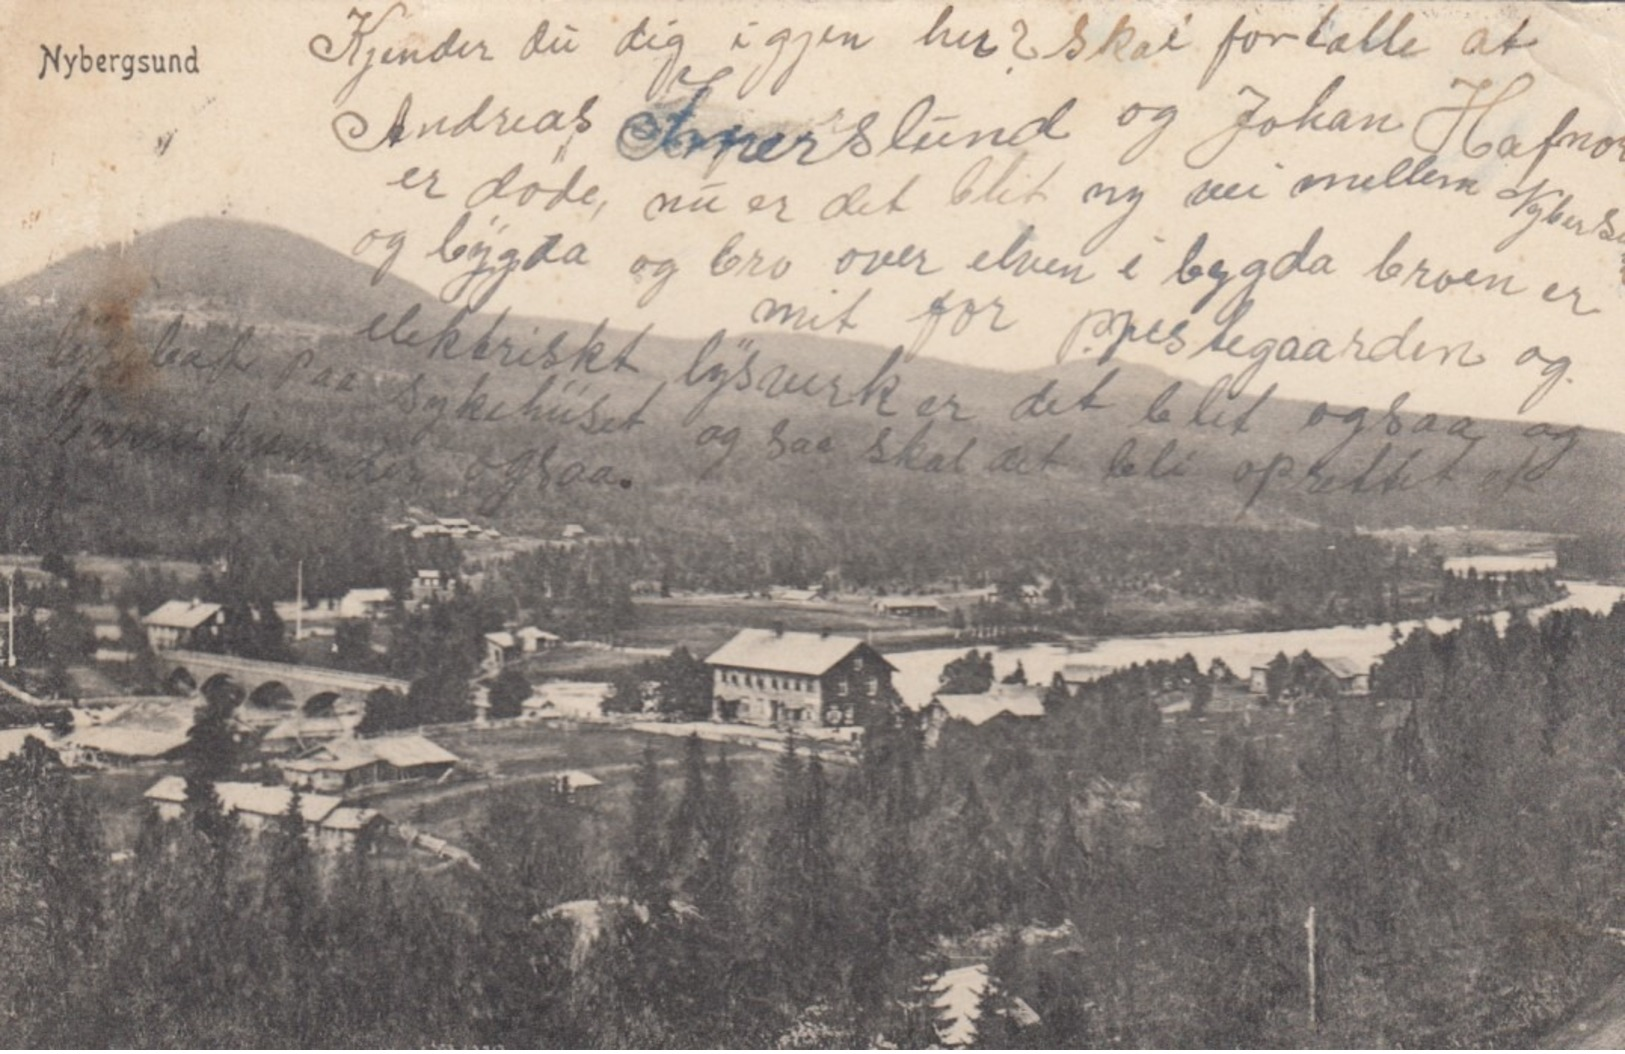 Nybergsund
Kjender du dig igjen her? skal fortælle at
Andreas Impersslund og Johan Hafnor
er døde, nu er det blit ny vei mellem Nybersu
og bygda og bro over elven i bygda broen er
mit for prestegaarden og
elektriskt lysverk er det blit ogsaa og
paa sykehuset og saa skal det bli oprettet et
der ogsaa.